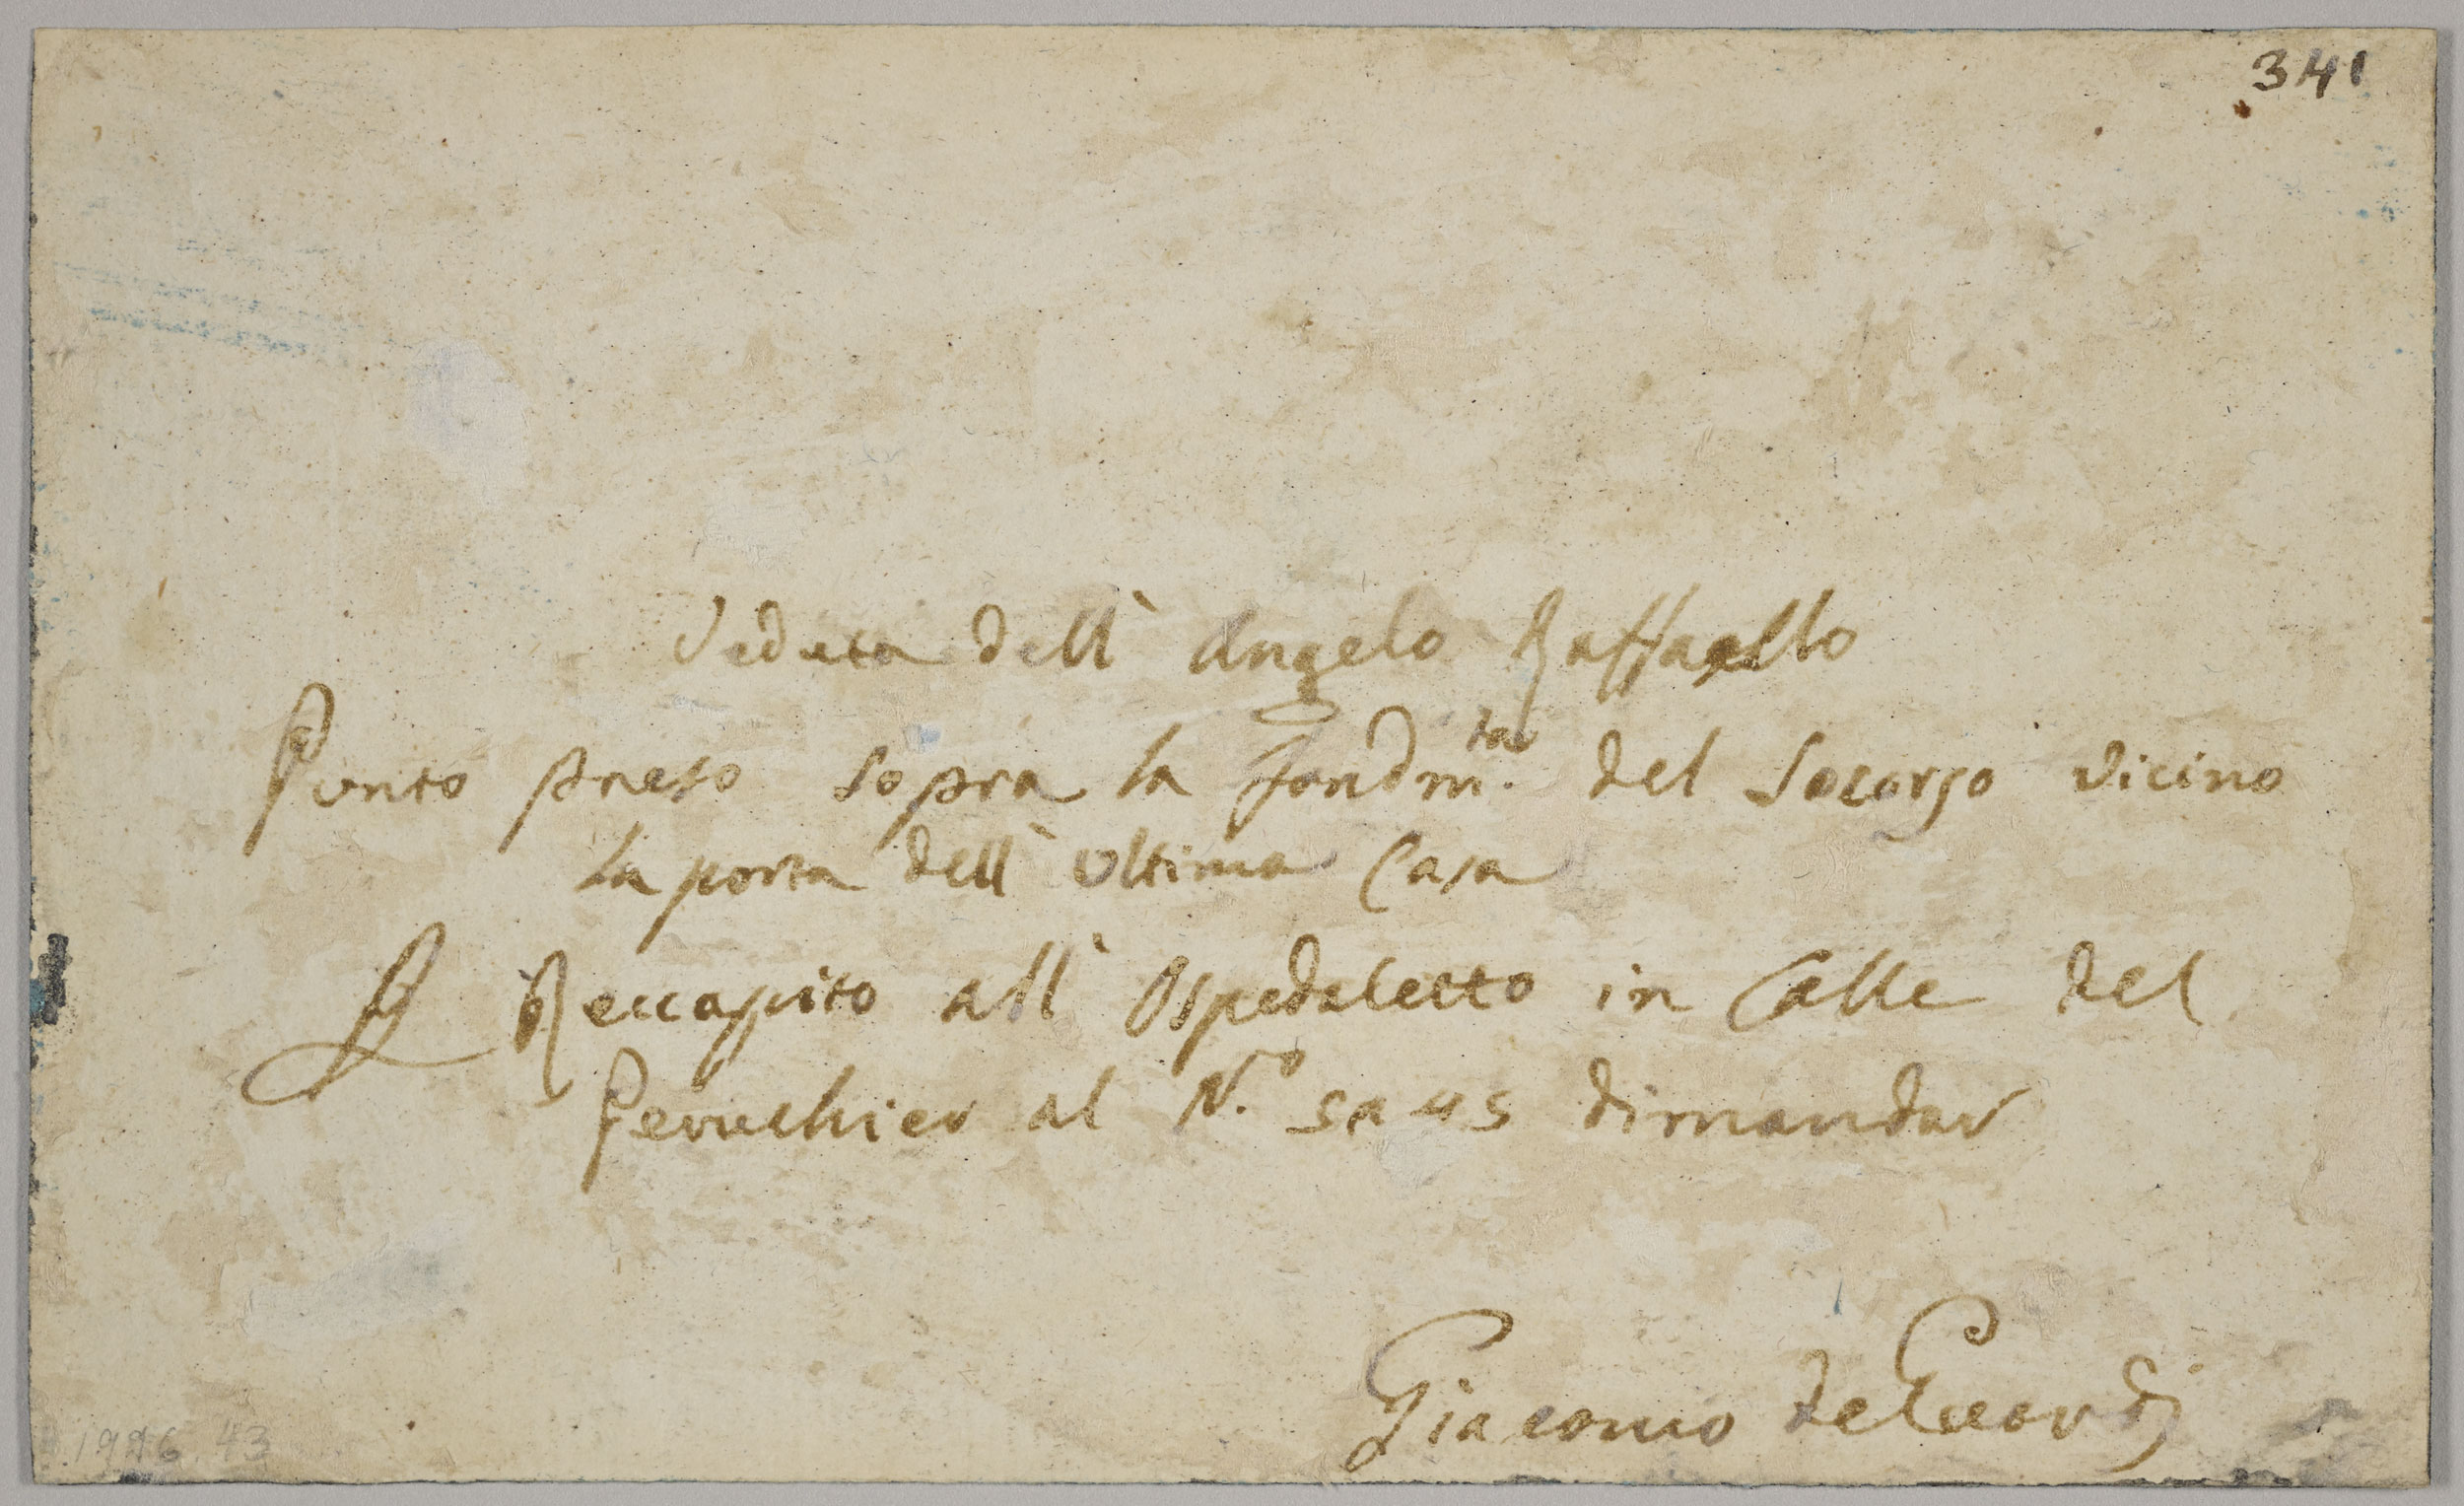 341
Veduta dell' Angelo Raffaello
Punto preso sopra la fondm.ta del Socorso vicino
la porta dell' Ultima Casa
Reccapito all' Ospedaletto in Calle del
Peruchier al N.o dimandar
Giacomo de Guardj